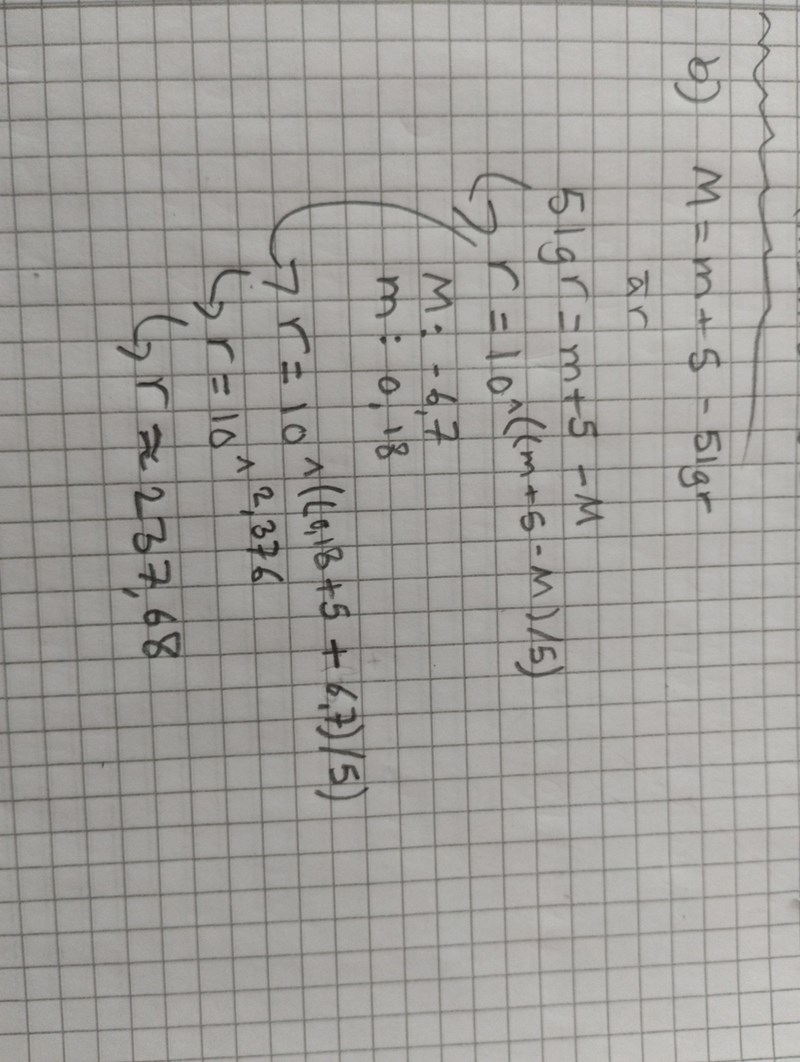 b) M = m + 5 - 5lgr
är
5lgr = m+5 - M
r = 10^((m+5-M)/5)
M: -6,7
m: 0,18
r = 10^((0,18+5+6,7)/5)
r = 10^2,376
r ≈ 237,68